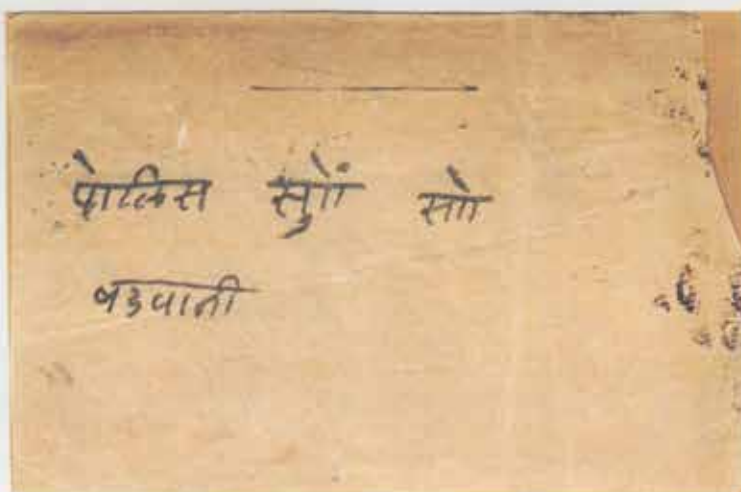 पोलिस सुों सो
बडवानी